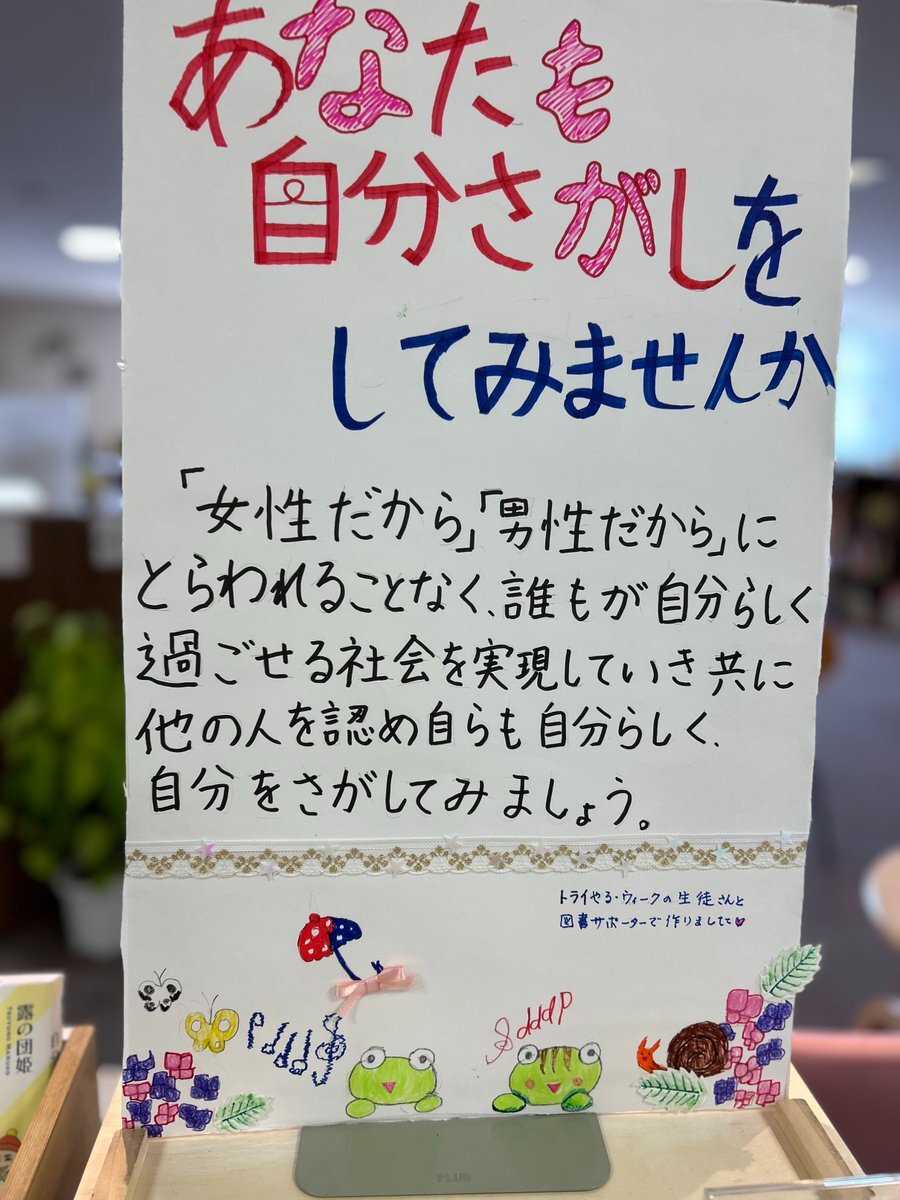 あなたも
自分さがしを
してみませんか
「女性だから」「男性だから」に
とらわれることなく、誰もが自分らしく
過ごせる社会を実現していき共に
他の人を認め自らも自分らしく、
自分をさがしてみましょう。
トライやる・ウィークの生徒さんと
図書サポーターで作りました
露の団姫
TSUYUNO MARUKO
PLUS